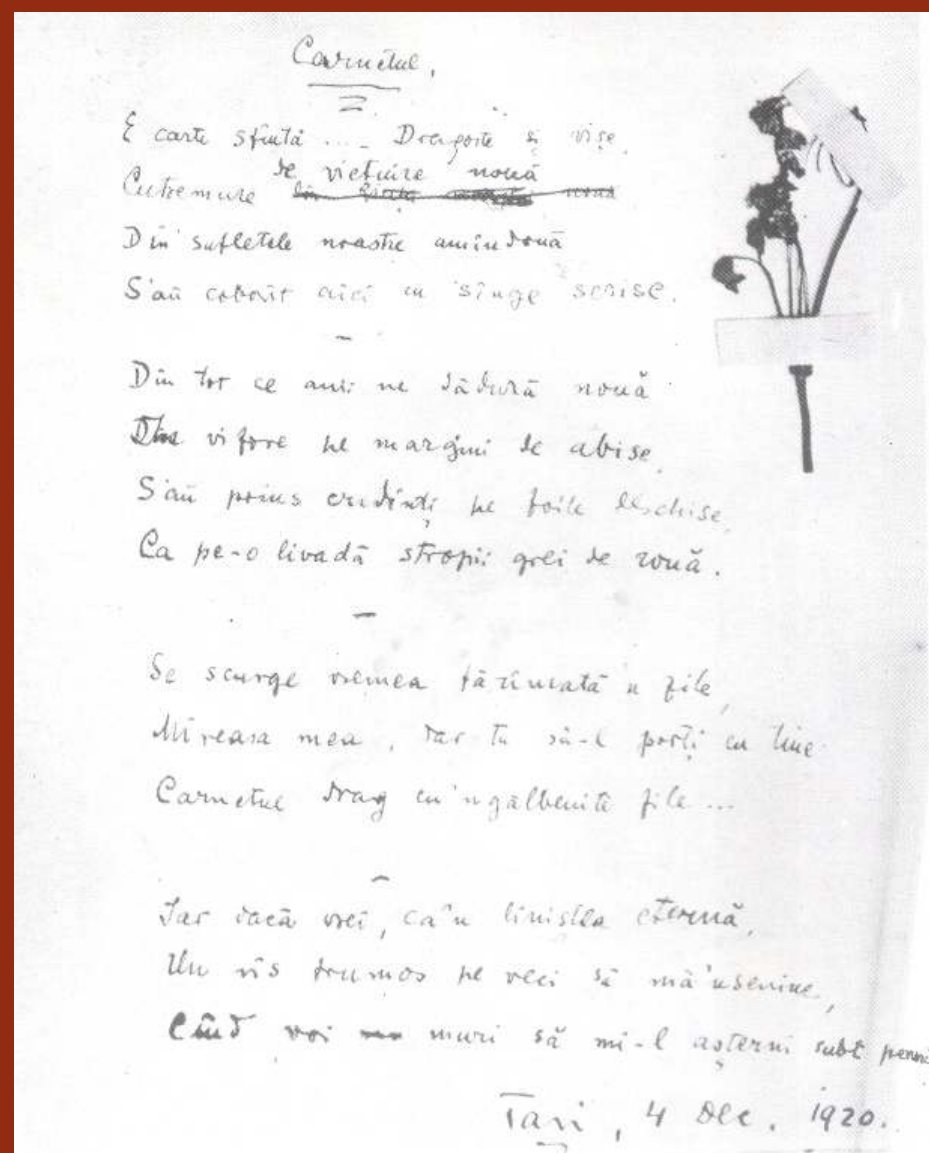 Carnetul.
E carte sfîntă .... Dragoste și vise,
Cutremure de viețuire nouă
Din sufletele noastre amîndouă
S'au coborît aici cu sînge scrise.
Din tot ce anii ne dădură nouă
Din vifore pe margini de abise,
S'au prins credinți pe foile deschise,
Ca pe-o livadă stropii grei de rouă.
Se scurge vremea fărîmată'n zile,
Mireasa mea, dar tu să-l porți cu tine
Carnetul drag cu'ngălbenite file ...
Iar dacă vrei, ca'n liniștea eternă,
Un vis frumos pe veci să mă'nsenine,
Cînd voi muri să mi-l așterni subt
Iași, 4 Dec. 1920.